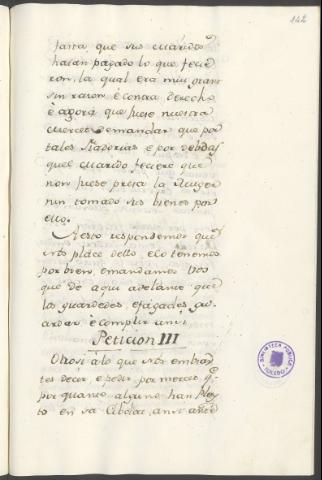 142
fasta que sus maridos
haian pagado lo que fecie
ron, la qual era mui gran
sin razon, è contra derecho
è agora que fuese nuestra
merced demandar que por
tales fiadurias, è por debdas
quel marido feciere que
non fuese presa la Muger
nin tomado sus bienes por
ello.
A esto respondemos que
nos place dello, elo tenemos
por bien, emandamos vos
que de aqui adelante que
lo guardedes, efagades gu
ardar, è complir ansi
Peticion III
Otrosi àlo que nos embias
tes decir, e pedir por merced q.e
por quanto algunos han Pley
to en la
BIBLIOTECA PUBLICA
TOLEDO